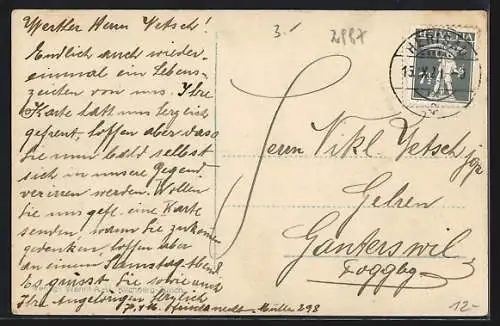 Werther Herr Jetsch!
Endlich auch wieder
einmal ein Lebens-
zeichen von uns. Ihre
Karte hatt uns herzlich
gefreut, hoffen aber dass
Sie nun bald selbst
sich in unsere Gegend
verirren werden. Wollen
Sie uns gefl. eine Karte
senden, wann Sie zu kommen
gedenken, hoffen aber
an einem Samstag Abend.
Es grüsst Sie sowie auch
Ihre Angehörigen herzlich
Müller 298
3.-
2987
HELVETIA
Herrn Nikl. Jetsch, jgr
Gelren
Ganterswil
Toggbg
12-